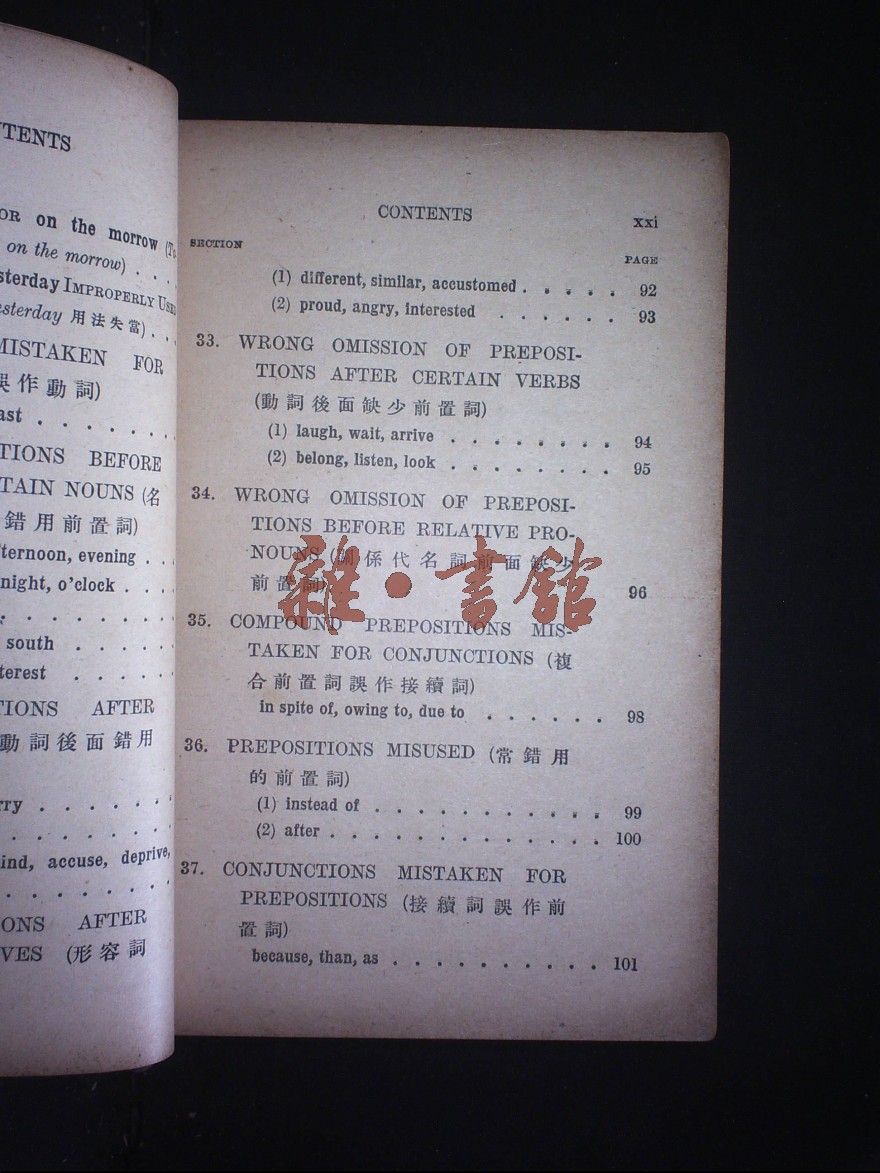 TENTS
OR on the morrow
on the morrow) . . .
yesterday IMPROPERLY
yesterday 用法失當) . . .
MISTAKEN FOR
作動詞)
. . . . . . .
TIONS BEFORE
TAIN NOUNS (名
錯用前置詞)
afternoon, evening . . .
night, o'clock . . . .
. . . . . . .
south . . . . .
. . . . .
TIONS AFTER
動詞後面錯用
. . . . . .
. . . . . . .
accuse, deprive,
. . . . . . .
IONS AFTER
VES (形容詞
CONTENTS
xxi
SECTION
PAGE
(1) different, similar, accustomed . . . . . 92
(2) proud, angry, interested . . . . . . 93
33. WRONG OMISSION OF PREPOSI-
TIONS AFTER CERTAIN VERBS
(動詞後面缺少前置詞)
(1) laugh, wait, arrive . . . . . . . . 94
(2) belong, listen, look . . . . . . . . 95
34. WRONG OMISSION OF PREPOSI-
TIONS BEFORE RELATIVE PRO-
NOUNS (關係代名詞前面缺少
前置詞) 96
雜·書館
35. COMPOUND PREPOSITIONS MIS-
TAKEN FOR CONJUNCTIONS (複
合前置詞誤作接續詞)
in spite of, owing to, due to . . . . . . 98
36. PREPOSITIONS MISUSED (常錯用
的前置詞)
(1) instead of . . . . . . . . . . 99
(2) after . . . . . . . . . . . . 100
37. CONJUNCTIONS MISTAKEN FOR
PREPOSITIONS (接續詞誤作前
置詞)
because, than, as . . . . . . . . . . 101